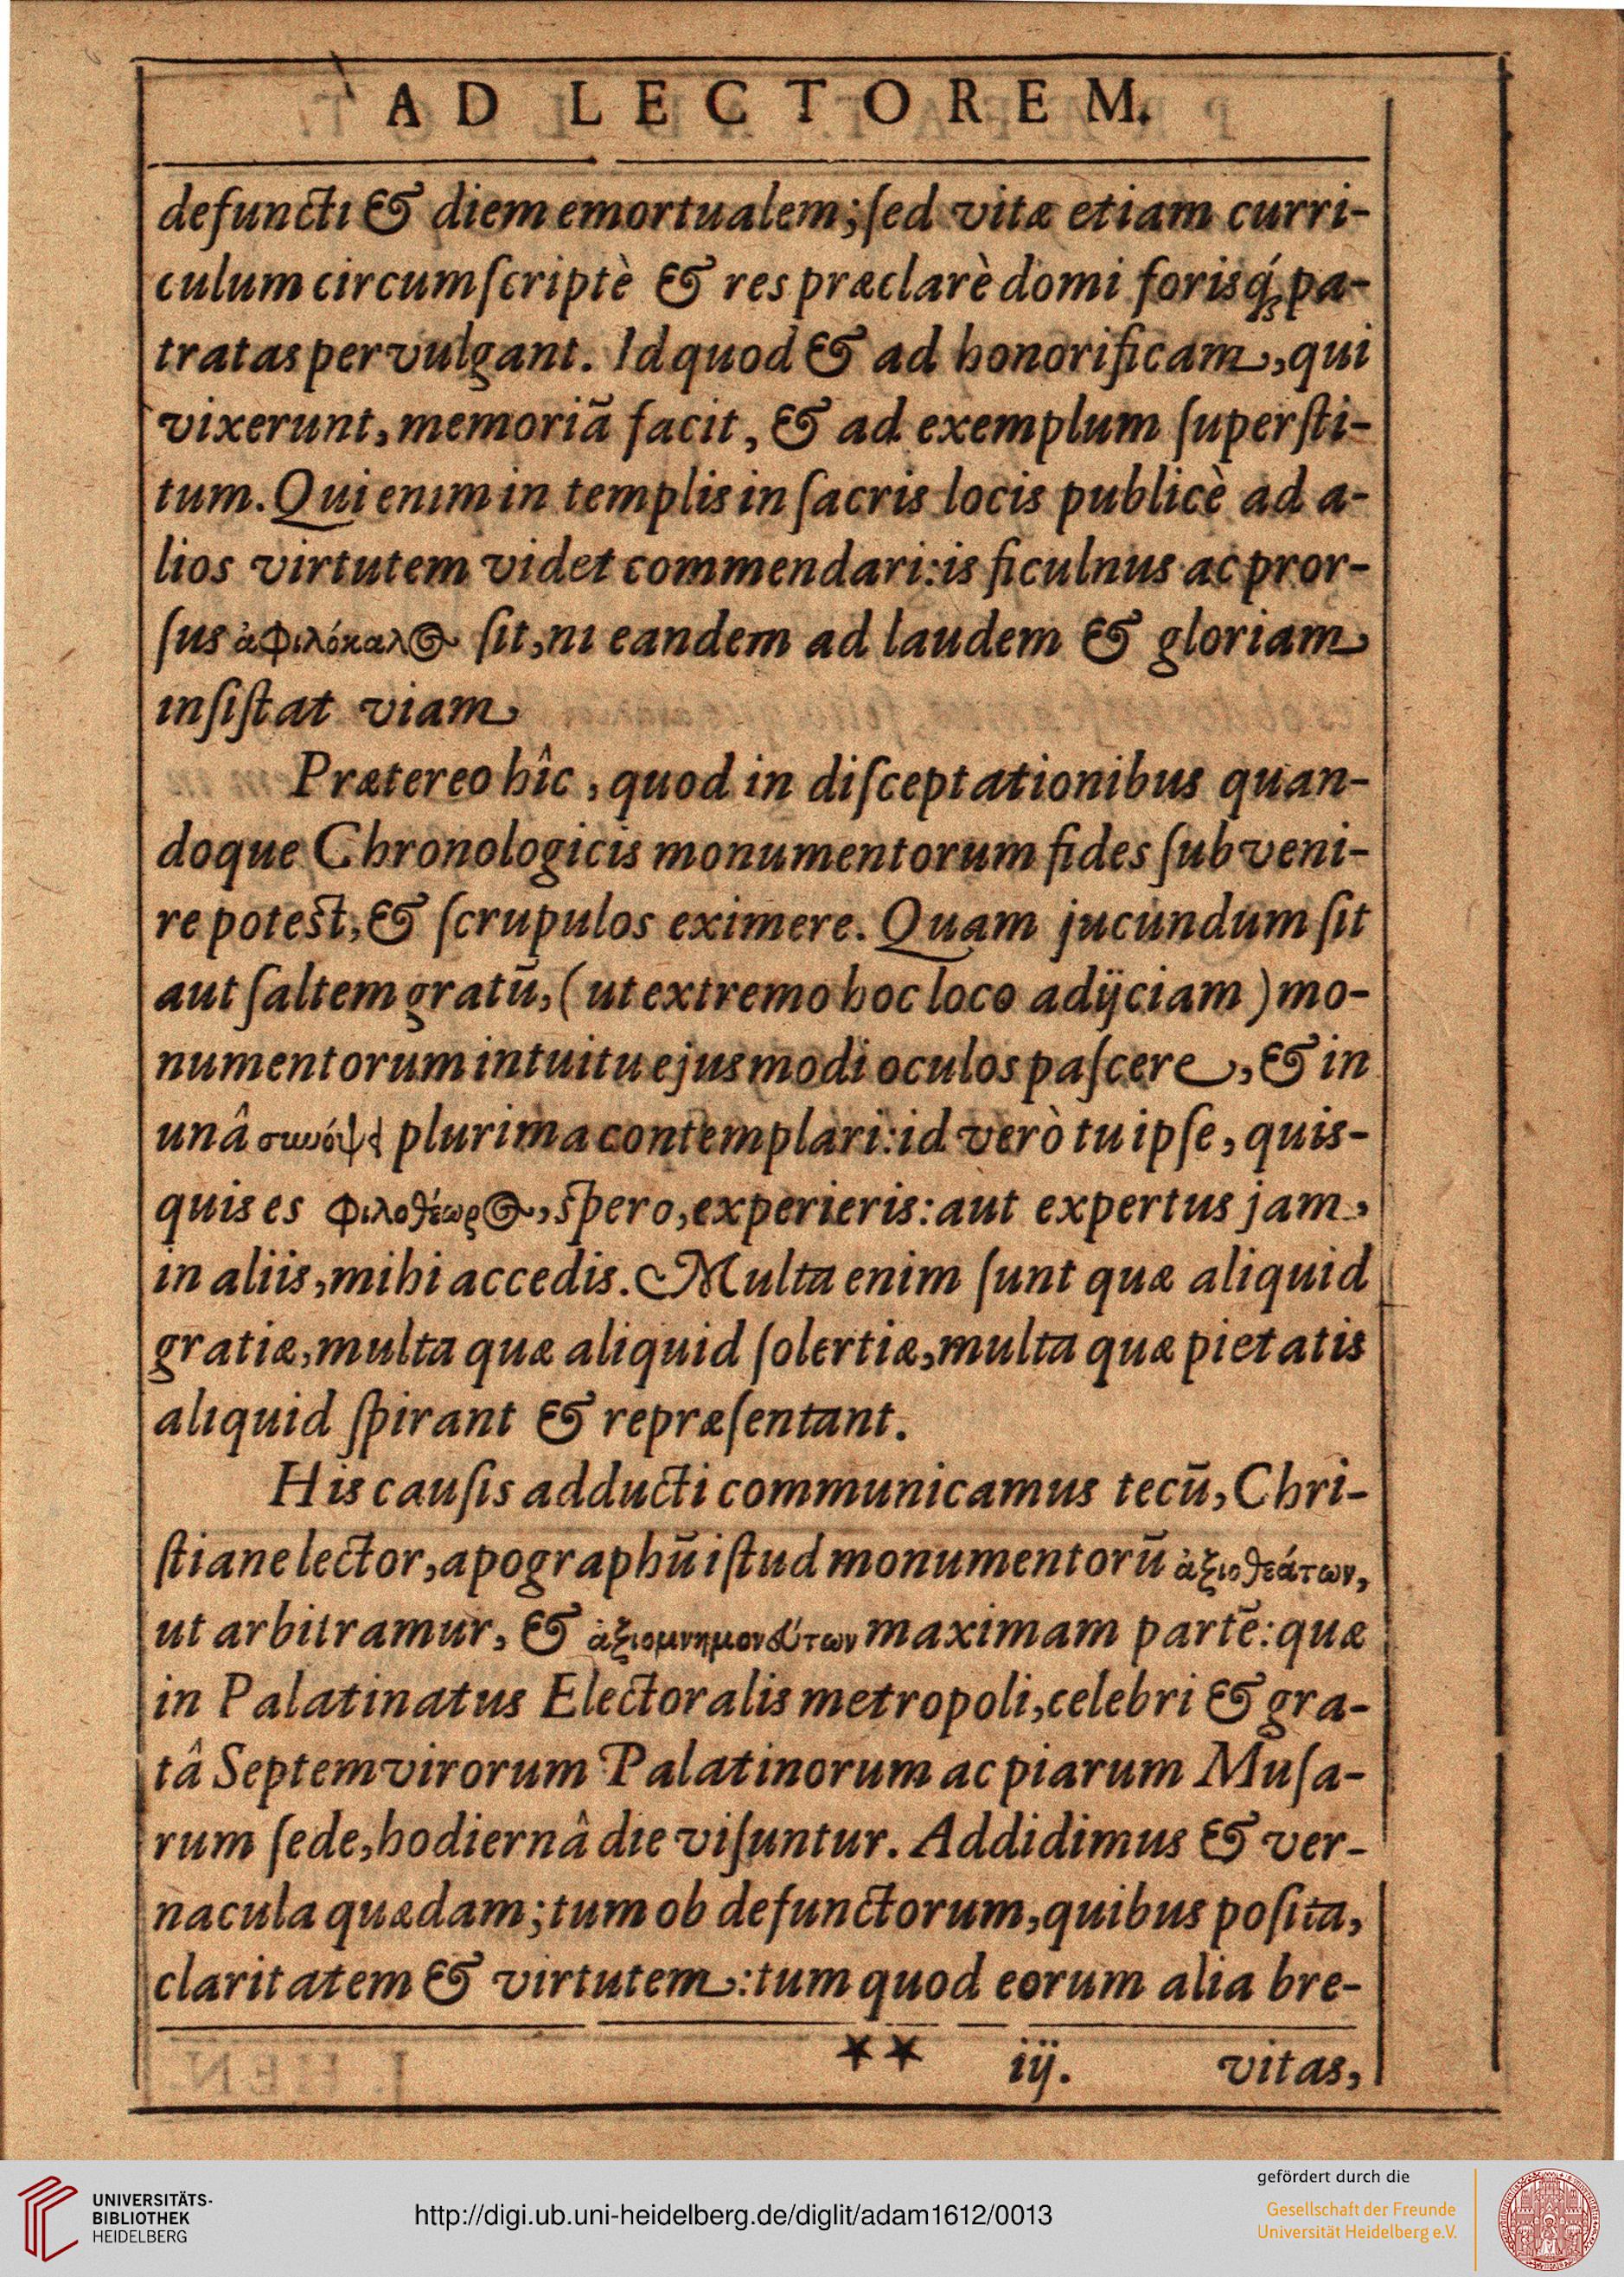 AD LECTOREM.
defuncti & diem emortualem; ſed vitæ etiam curri-
culum circumſcriptè & res præclarè domi foriſq́; pa-
tratas pervulgant. Id quod & ad honorificam, qui
vixerunt, memoriã facit, & ad exemplum ſuperſti-
tum. Qui enim in templis in ſacris locis publicè ad a-
lios virtutem videt commendari: is ficulnus ac pror-
ſus ἀφιλόκαλος ſit, ni eandem ad laudem & gloriam
inſiſtat viam
Prætereo hîc, quod in diſceptationibus quan-
doque Chronologicis monumentorum fides ſubveni-
re poteſt, & ſcrupulos eximere. Quam jucundum ſit
aut ſaltem gratũ, (ut extremo hoc loco adijciam) mo-
numentorum intuitu ejusmodi oculos paſcere, & in
unâ συνόψει plurima contemplari: id verò tu ipſe, quis-
quis es φιλοθέωρος, ſpero, experieris: aut expertus jam,
in aliis, mihi accedis. Multa enim ſunt quæ aliquid
gratiæ, multa quæ aliquid ſolertiæ, multa quæ pietatis
aliquid ſpirant & repræſentant.
His cauſis adducti communicamus tecũ, Chri-
ſtiane lector, apographũ iſtud monumentorũ ἀξιοθεάτων,
ut arbitramur, & ἀξιομνημονεύτων maximam partẽ: quæ
in Palatinatus Electoralis metropoli, celebri & gra-
tâ Septemvirorum Palatinorum ac piarum Muſa-
rum ſede, hodiernâ die viſuntur. Addidimus & ver-
nacula quædam; tum ob defunctorum, quibus poſita,
claritatem & virtutem: tum quod eorum alia bre-
** iij. vitas,
UNIVERSITÄTS-
BIBLIOTHEK
HEIDELBERG
http://digi.ub.uni-heidelberg.de/diglit/adam1612/0013
gefördert durch die
Gesellschaft der Freunde
Universität Heidelberg e.V.